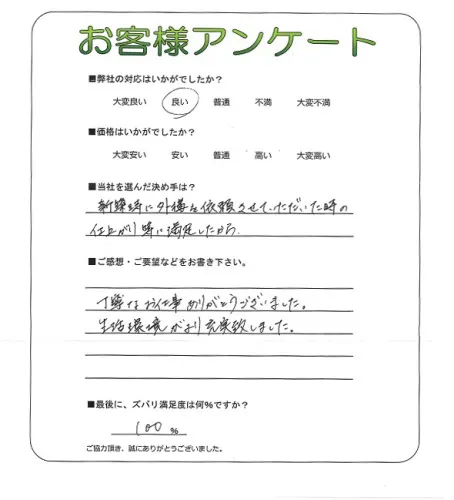 お客様アンケート
■弊社の対応はいかがでしたか?
大変良い 良い 普通 不満 大変不満
■価格はいかがでしたか?
大変安い 安い 普通 高い 大変高い
■当社を選んだ決め手は?
新築時に外構を依頼させていただいた時の
仕上がり時に満足したから
■ご感想・ご要望などをお書き下さい。
丁寧なお仕事ありがとうございました。
生活環境がより充実致しました。
■最後に、ズバリ満足度は何%ですか?
100 %
ご協力頂き、誠にありがとうございました。